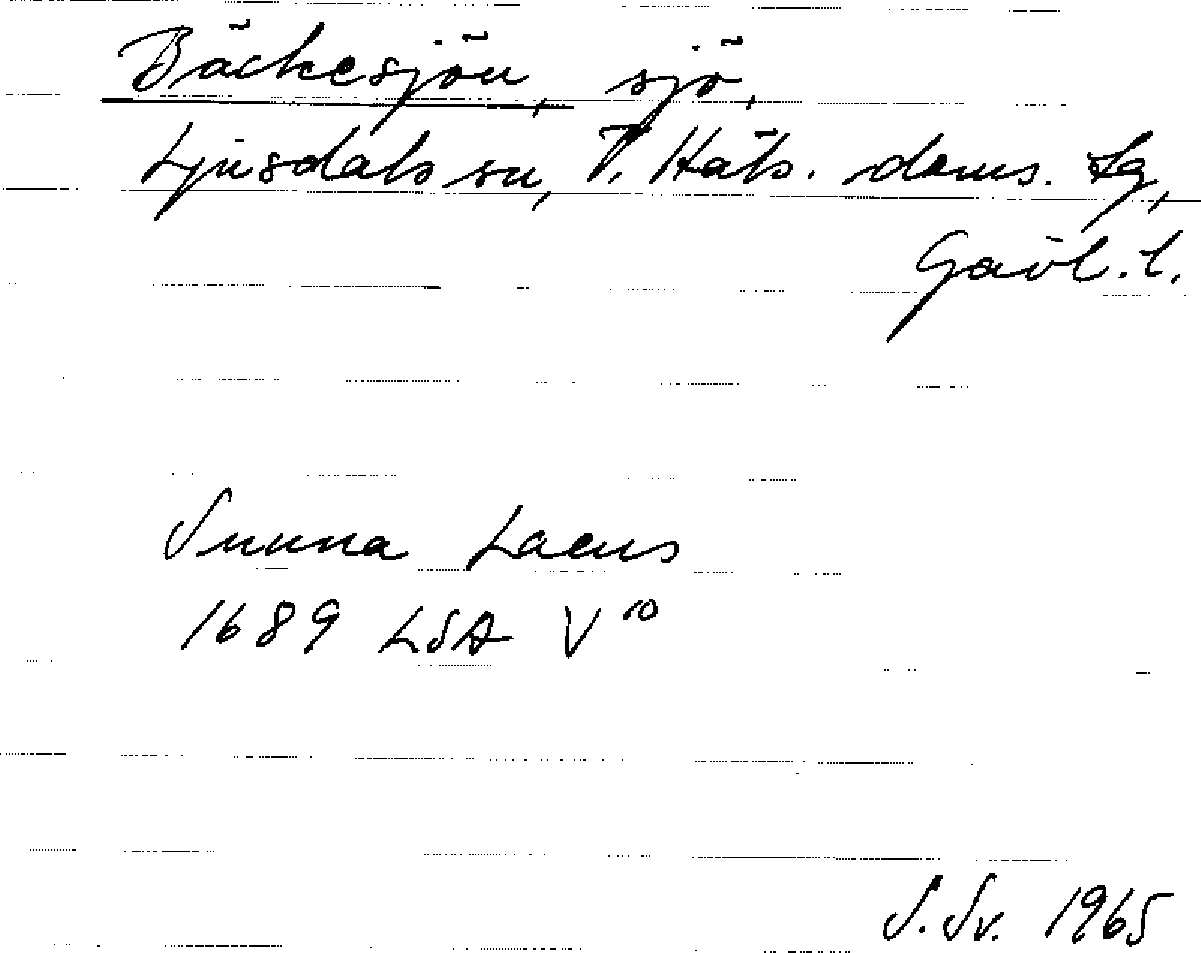 Bäckesjön, sjö,
Ljusdals sn, V. Häls. doms. tg,
Gävl. l.
Sunna Lacus
1689 LSA V¹⁰
S. Sv. 1965